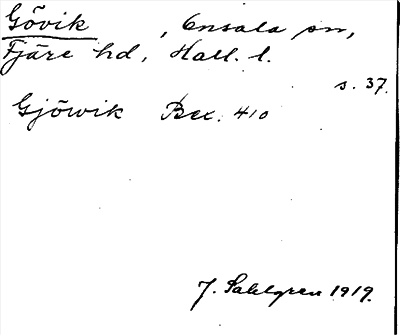 Gövik , Onsala sn,
Fjäre hd, Hall. l.
s. 37.
Gjöwik Bex. 410
J. Sahlgren 1919.